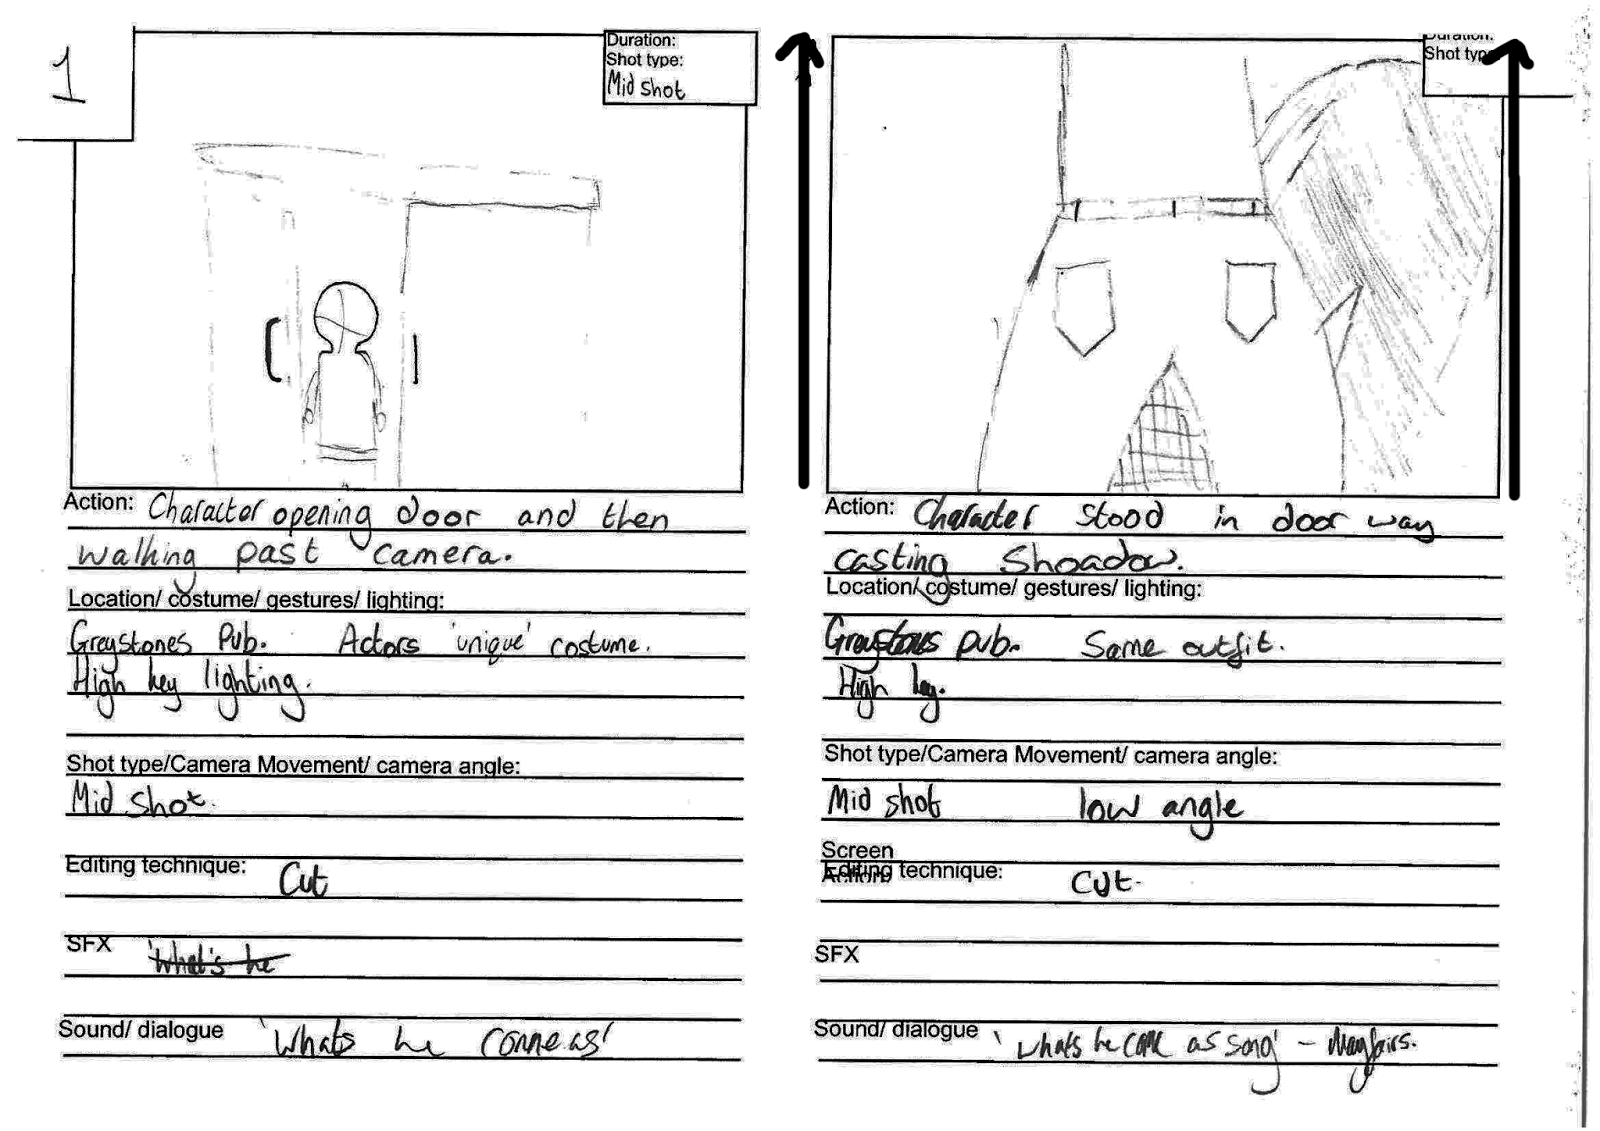 1
Duration:
Shot type:
Mid shot
Action: Character opening door and then
walking past camera.
Location/ costume/ gestures/ lighting:
Greystones Pub. Actors 'unique' costume.
High key lighting.
Shot type/Camera Movement/ camera angle:
Mid Shot.
Editing technique: Cut
SFX 'What's he
Sound/ dialogue 'Whats he come as'
Duration:
Shot type
Action: Character stood in door way
casting Shoadow.
Location/ costume/ gestures/ lighting:
Greystones pub. Same outfit.
High key.
Shot type/Camera Movement/ camera angle:
Mid shot low angle
Screen
Action:
Editing technique: Cut.
SFX
Sound/ dialogue 'whats he come as song' - Mayfairs.